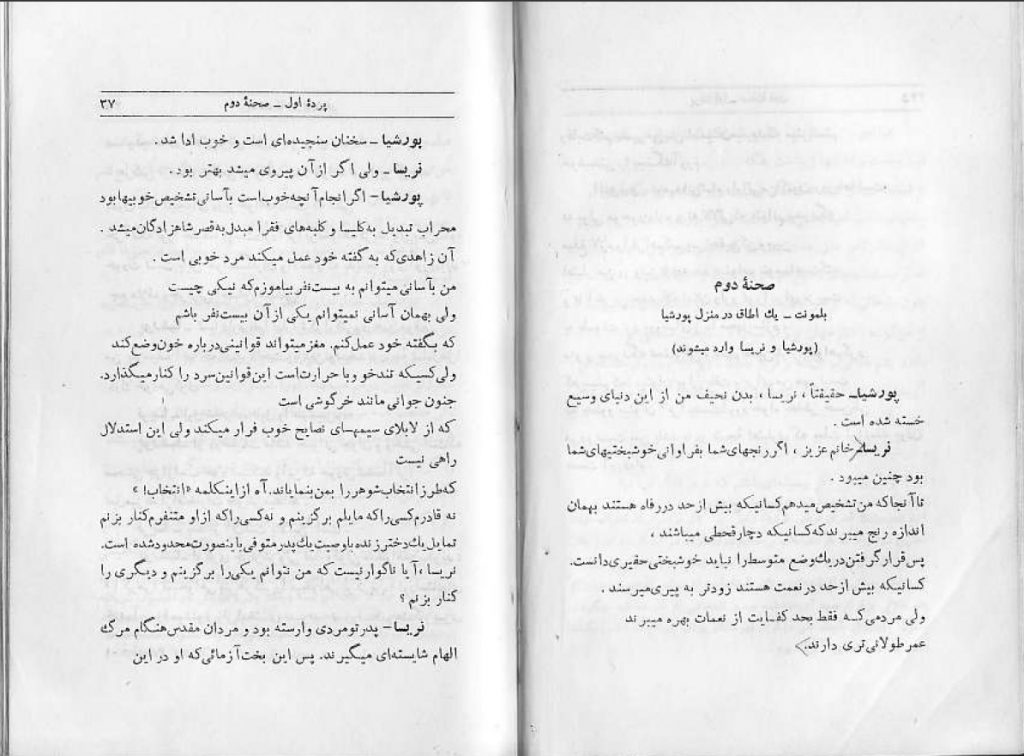 صحنهٔ دوم
بلمونت ـ یك اطاق در منزل پورشیا
(پورشیا و نریسا وارد میشوند)
پورشیا ـ حقیقتاً ، نریسا ، بدن نحیف من از این دنیای وسیع
خسته شده است .
نریسا ـ خانم عزیز ، اگر رنجهای شما بفراوانی خوشبختیهای شما
بود چنین میبود .
تا آنجا که من تشخیص میدهم کسانیکه بیش از حد در رفاه هستند بهمان
اندازه رنج میبرند که کسانیکه دچار قحطی میباشند ،
پس قرار گرفتن در یك وضع متوسط را نباید خوشبختی حقیری دانست.
کسانیکه بیش از حد در نعمت هستند زودتر به پیری میرسند .
ولی مردمی که فقط بحد کفایت از نعمات بهره میبرند
عمر طولانی‌تری دارند.
پردهٔ اول ـ صحنهٔ دوم ۳۷
پورشیا ـ سخنان سنجیده‌ای است و خوب ادا شد .
نریسا ـ ولی اگر از آن پیروی میشد بهتر بود .
پورشیا ـ اگر انجام آنچه خوب است بآسانی تشخیص خوبیها بود
محراب تبدیل به کلیسا و کلبه‌های فقرا مبدل به قصر شاهزادگان میشد .
آن زاهدی که به گفته خود عمل میکند مرد خوبی است .
من بآسانی میتوانم به بیست نفر بیاموزم که نیکی چیست
ولی بهمان آسانی نمیتوانم یکی از آن بیست نفر باشم
که بگفته خود عمل کنم. مغز میتواند قوانینی درباره خون وضع کند
ولی کسیکه تندخو و با حرارت است این قوانین سرد را کنار میگذارد.
جنون جوانی مانند خرگوشی است
که از لابلای سیمهای نصایح خوب فرار میکند ولی این استدلال
راهی نیست
که طرز انتخاب شوهر را بمن بنمایاند. آه از اینکلمه «انتخاب! »
نه قادرم کسی را که مایلم برگزینم و نه کسی را که از او متنفرم کنار بزنم
تمایل یك دختر زنده با وصیت یك پدر متوفی باینصورت محدود شده است.
نریسا ، آیا ناگوار نیست که من نتوانم یکی را برگزینم و دیگری را
کنار بزنم ؟
نریسا ـ پدر تو مردی وارسته بود و مردان مقدس هنگام مرگ
الهام شایسته‌ای میگیرند. پس این بخت آزمائی که او در این